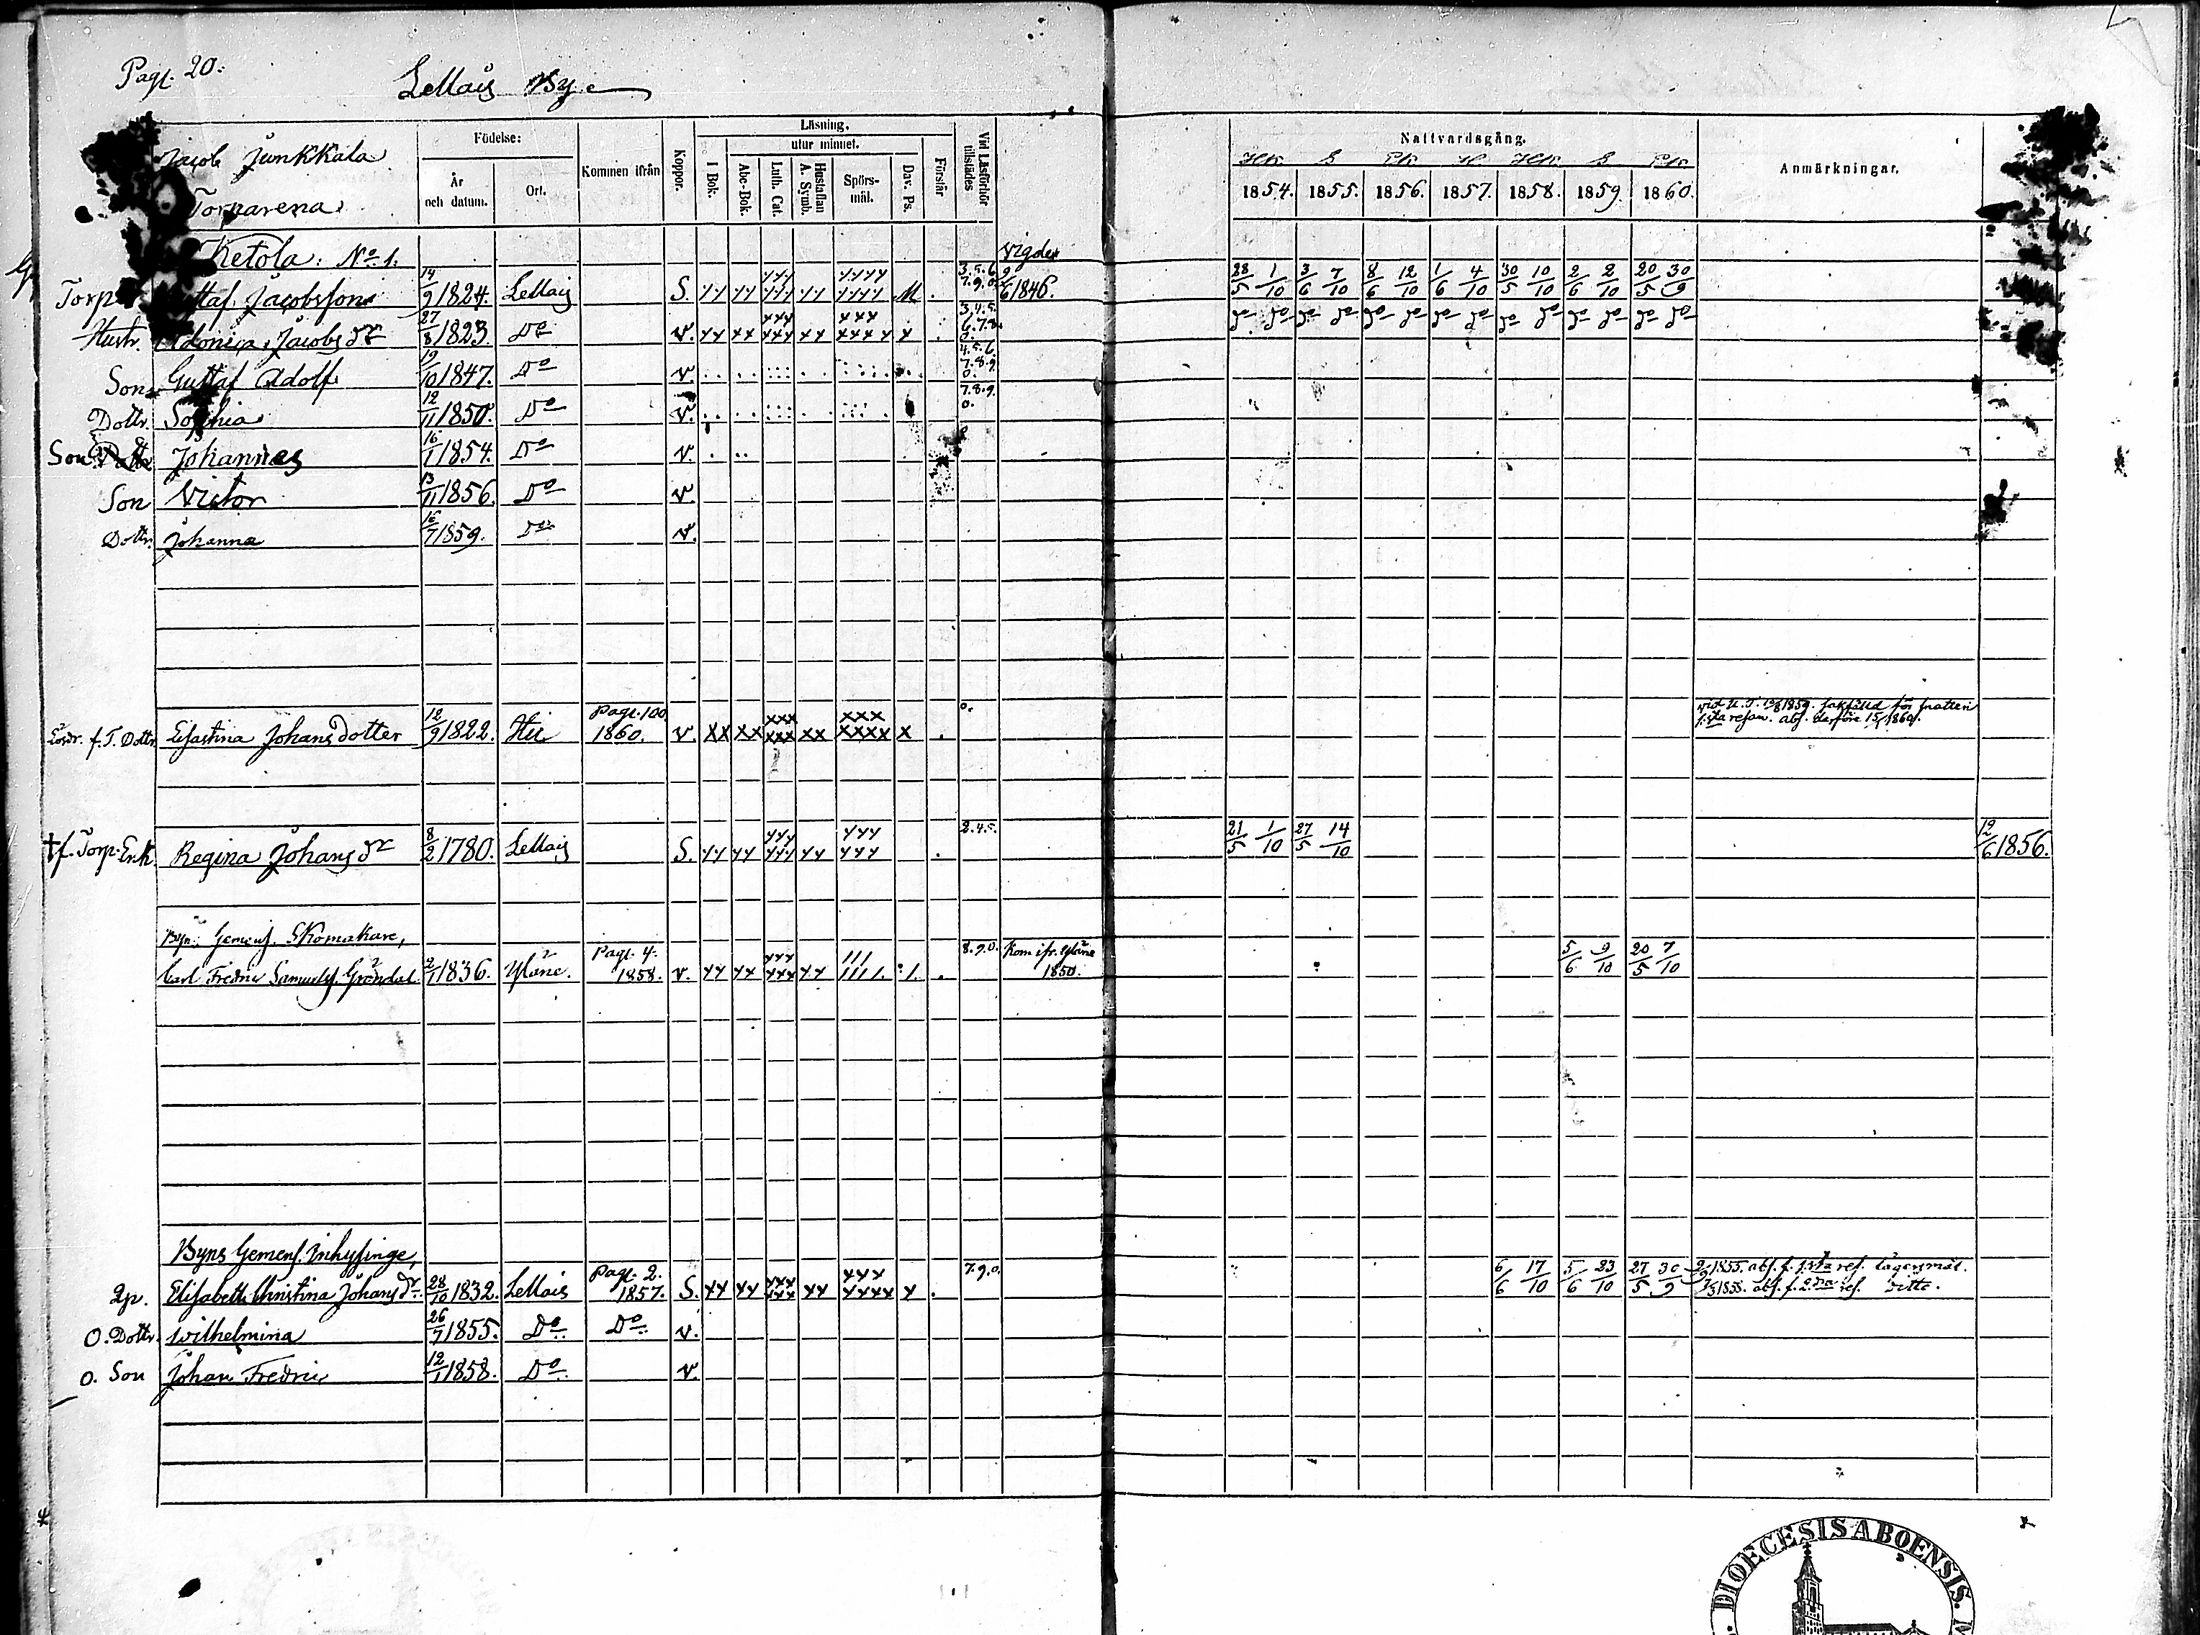 Pag. 20.
Lellais By
Jacob Junkkala
Torparena
Födelse:
År och datum.
Ort.
Kommen ifrån
Koppor.
Läsning.
utur minnet.
I Bok.
Abc-Bok.
Luth. Cat.
Hustaflan A. Symb.
Spörsmål.
Dav. Ps.
Förstår
Vid Läsförhör tillstädes
Nattvardsgång.
1854. 1855. 1856. 1857. 1858. 1859. 1860.
Anmärkningar.
Ketola. No 1. Vigder
Torp Jacobsson 14/9 1824. Lellais S. 3.5.6. 7.9.0. 9/6 1846. 28/5 1/10 3/6 7/10 8/6 12/10 1/6 4/10 30/5 10/10 2/6 2/10 20/5 30/9
Hustr. Jacobsdr 27/8 1823. Do v. 3.4.5. 6.7.8. 0. do do do do do do do do do do do do do do
Son Gustaf Adolf 19/10 1847. Do v. 4.5.6. 7.8.9. 0.
Dottr. Sophia 12/11 1850. Do v. 7.8.9. 0.
Son Johannes 16/1 1854. Do v.
Son Victor 13/11 1856. Do v.
Dottr. Johanna 16/7 1859. Do v.
f. T. Dottr Johansdotter 12/9 1822. Hu Pag. 100 1860. v. xx xx xxx xxx xx xxx xxxx x 0.
† f. Torp. Enk. Regina Johansdr 8/2 1780. Lellais S. 2.4.5. 21/5 1/10 27/5 14/10 12/6 1856.
Byn. Gemens. Skomakare,
Carl Fredric Samuelss. Gröndal. 2/1 1836. Yläne. Pag. 4. 1858. v. 8.9.0. Kom ifr. Yläne 1850. 5/6 9/10 20/5 7/10
Byns Gemens. Inhysinge,
Qp. Elisabeth Christina Johansdr. 28/10 1832. Lellais Pag. 2. 1857. S. 7.9.0. 6/6 17/10 5/6 23/10 27/5 30/9 1855. abs. f. 1sta ref. lägersmål.
1858. abs. f. 2dra ref. ditto.
O. Dottr. Wilhelmina 26/7 1855. Do Do v.
O. Son Johan Fredric 12/1 1858. Do v.
DIOECESIS ABOENSIS.